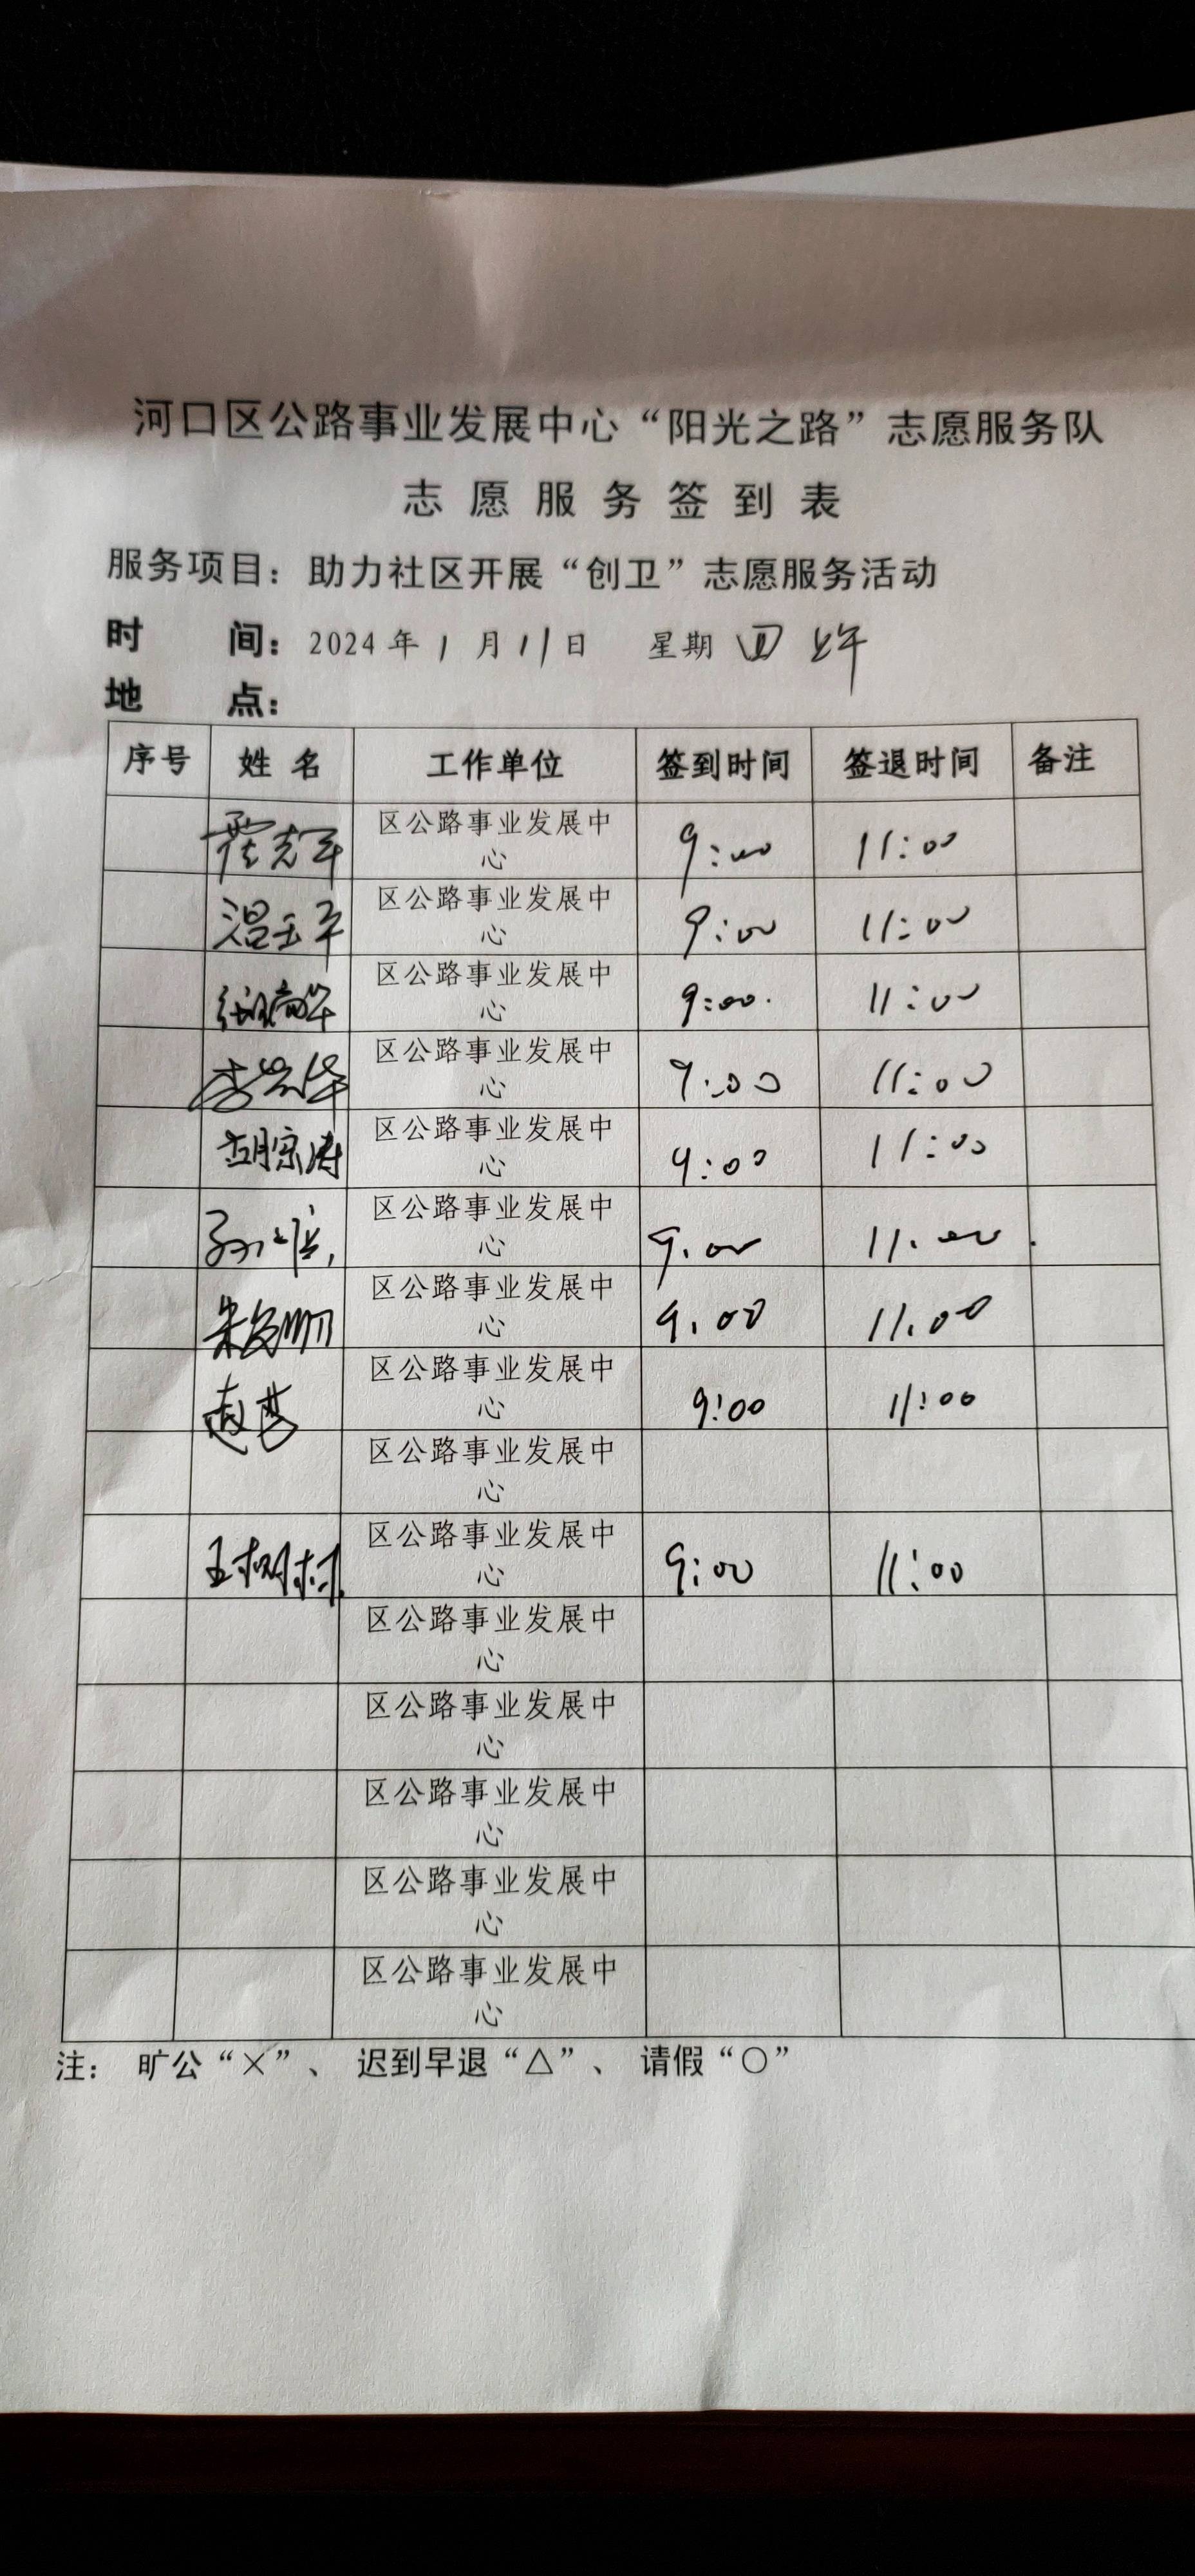 河口区公路事业发展中心“阳光之路”志愿服务队
志愿服务签到表
服务项目：助力社区开展“创卫”志愿服务活动
时 间：2024年1月11日 星期四 上午
地 点：
序号 姓名 工作单位 签到时间 签退时间 备注
区公路事业发展中
心 9:00 11:00
温玉平 区公路事业发展中
心 9:00 11:00
区公路事业发展中
心 9:00 11:00
区公路事业发展中
心 9:00 11:00
胡宗涛 区公路事业发展中
心 9:00 11:00
区公路事业发展中
心 9:00 11:00
区公路事业发展中
心 9:00 11:00
区公路事业发展中
心 9:00 11:00
区公路事业发展中
心
王树村 区公路事业发展中
心 9:00 11:00
区公路事业发展中
心
区公路事业发展中
心
区公路事业发展中
心
区公路事业发展中
心
区公路事业发展中
心
注： 旷公“×”、 迟到早退“△”、 请假“○”